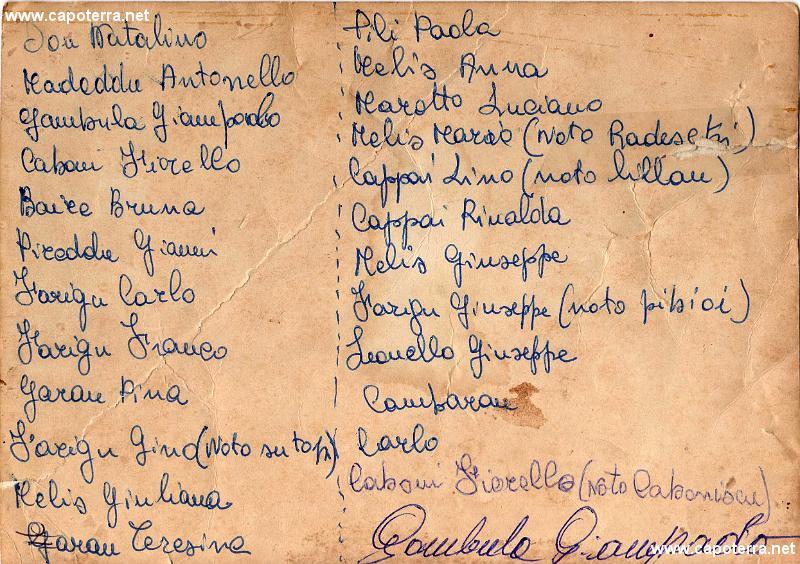 www.capoterra.net
Don Natalino
Madeddu Antonello
Gambula Giampaolo
Caboni Fiorello
Baire Bruna
Pireddu Gianni
Farigu Carlo
Farigu Franco
Garau Pina
Farigu Gino (Noto su topi)
Melis Giuliana
Garau Teresina
Pili Paola
Melis Anna
Marotto Luciano
Melis Mario (Noto Radesetzi)
Cappai Lino (noto lillau)
Cappai Rinalda
Melis Giuseppe
Farigu Giuseppe (noto pibioi)
Leonello Giuseppe
Cambarau
Carlo
Caboni Fiorello (Noto Caboniscu)
Gambula Giampaolo
www.capoterra.net